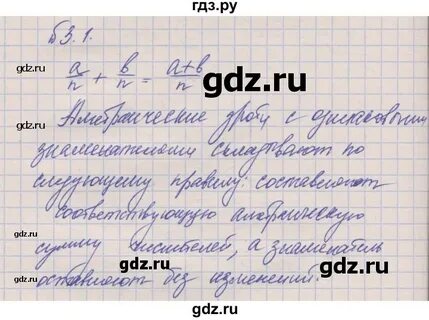 гдз.ру
§3.1.
a/n + b/n = a+b/n
gdz.ru gdz.ru gdz.ru
Алгебраические дроби с одинаковыми
знаменателями складывают по
gdz.ru gdz.ru
следующему правилу: составляют
соответствующую алгебраическую
gdz.ru gdz.ru gdz.ru
сумму числителей, а знаменатель
оставляют без изменений.
gdz.ru gdz.ru